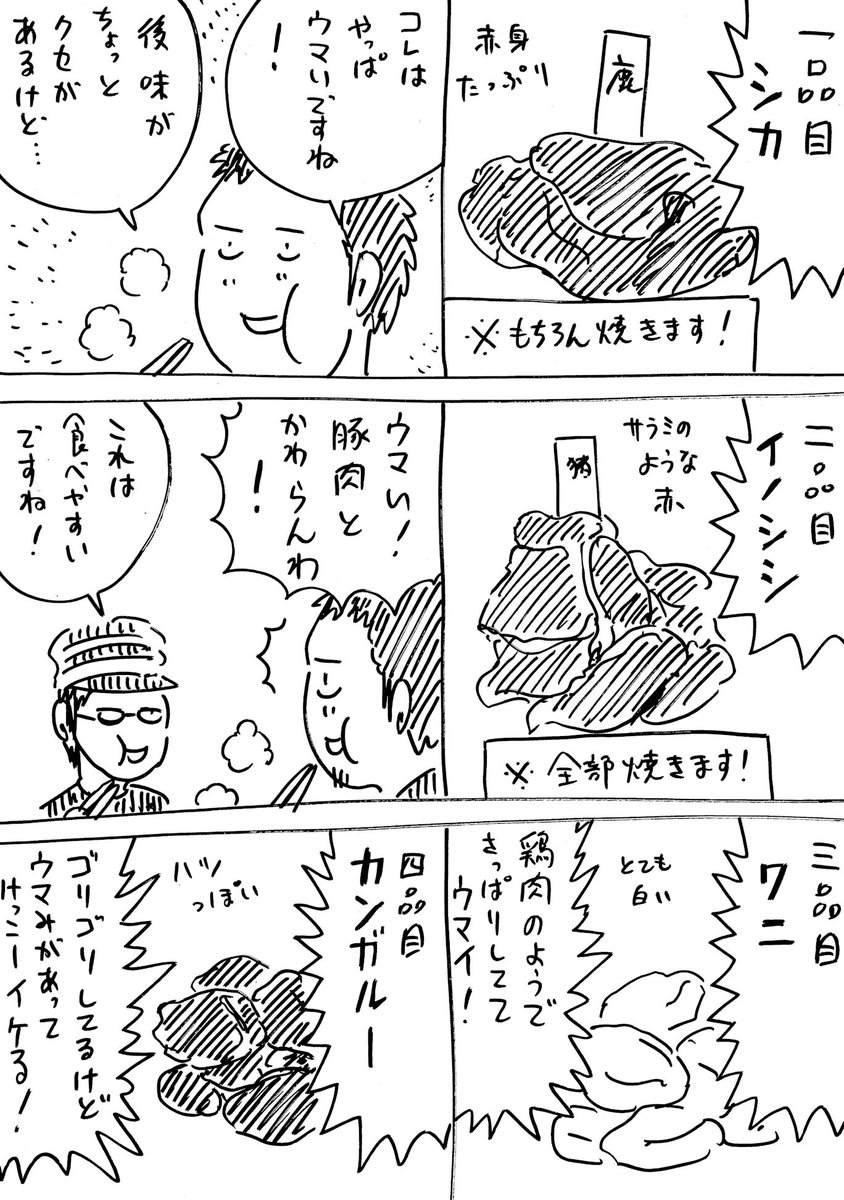 一品目
シカ
赤身
たっぷり
鹿
※もちろん焼きます!
コレは
やっぱ
ウマいですね
!
後味が
ちょっと
クセが
あるけど…
二品目
イノシシ
サラミの
ような
赤
猪
※全部焼きます!
ウマい!
豚肉と
かわらんわ
!
これは
食べやすい
ですね!
三品目
ワニ
とても
白い
鶏肉のようで
さっぱりしてて
ウマイ!
四品目
カンガルー
ハツ
っぽい
ゴリゴリしてるけど
ウマみがあって
けっこーイケる!